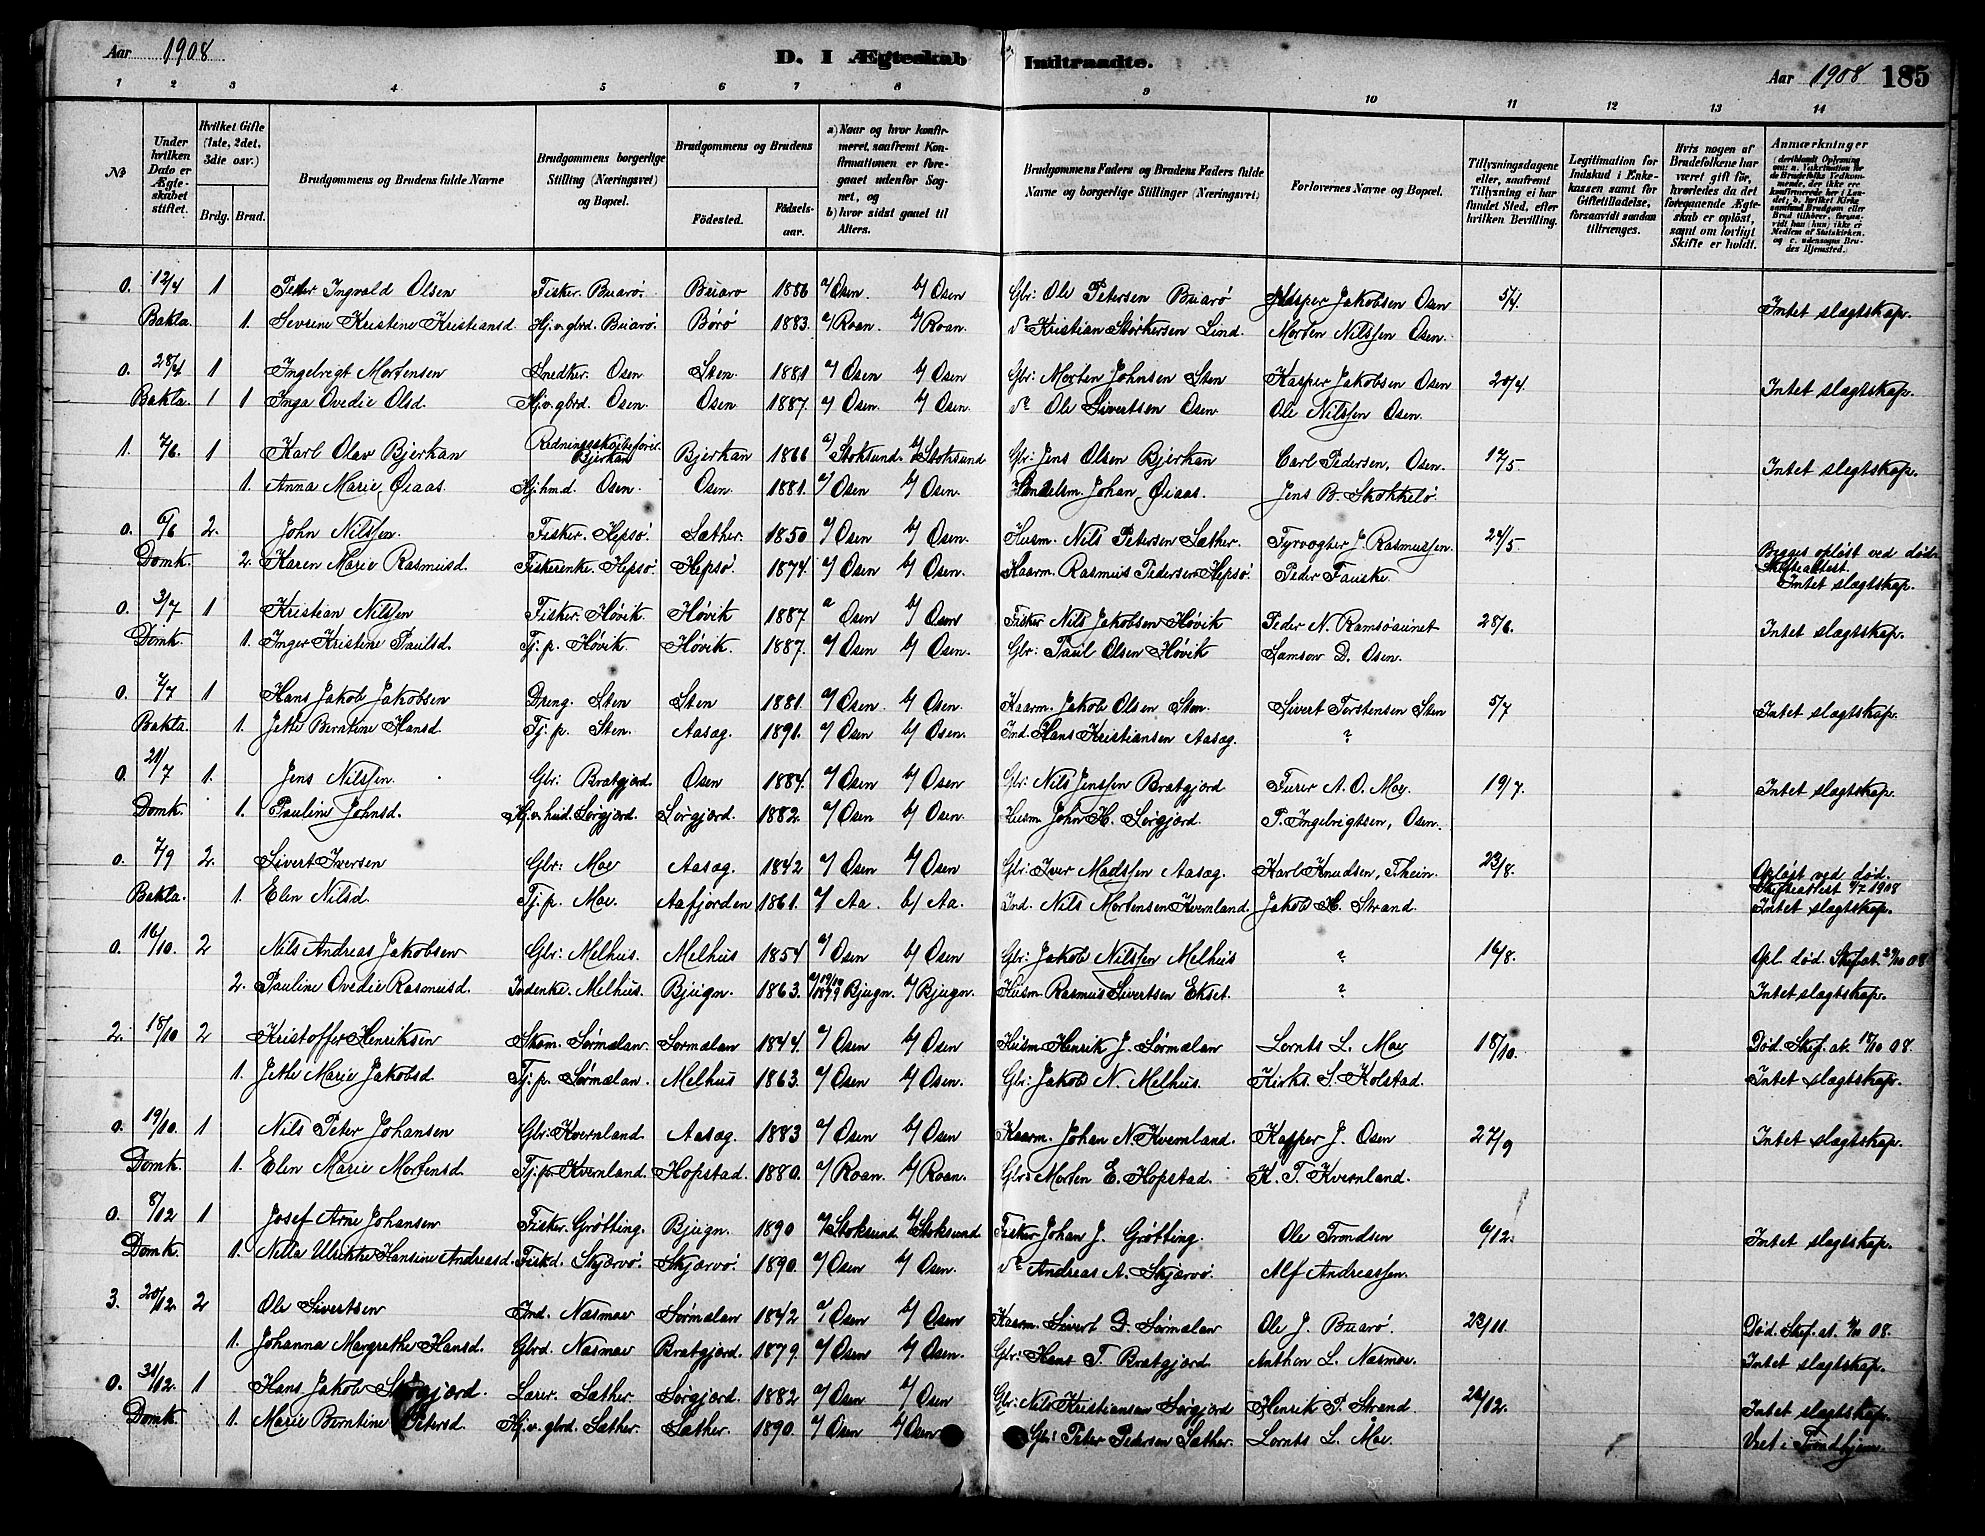 Aar 1908 D. I Ægteskab Indtraadte. Aar 1908 185
1 2 3 4 5 6 7 8 9 10 11 12 13 14
No
Under hvilken Dato er Ægteskabet stiftet.
Hvilket Gifte (1ste, 2det, 3die osv.)
Brdg. Brud.
Brudgommens og Brudens fulde Navne
Brudgommens borgerlige Stilling (Næringsvei) og Bopæl.
Brudgommens og Brudens
Fødested. Fødselsaar.
a) Naar og hvor konfirmeret, saafremt Konfirmationen er foregaaet udenfor Sognet, og
b) hvor sidst gaaet til Alters.
Brudgommens Faders og Brudens Faders fulde Navne og borgerlige Stillinger (Næringsvei)
Forlovernes Navne og Bopæl.
Tillysningsdagene eller, saafremt Tillysning ei har fundet Sted, efter hvilken Bevilling.
Legitimation for Indskud i Enkekassen samt for Giftetilladelse, forsaavidt saadan tiltrænges.
Hvis nogen af Brudefolkene har været gift før, hvorledes da det foregaaende Ægteskab er opløst, samt om lovligt Skifte er holdt.
Anmærkninger
0. 12/4 1 Peter Ingvald Olsen Fisker. Buarø. Buarø 1886 a/ Osen. b/ Osen Gbr: Ole Petersen Buarø Kasper Jakobsen Osen 5/4. Intet slægtskap.
Bakla. 1. Sevrine Kristine Kristiansd Hj.v.gbrd. Buarø. Børø 1883. a/ Roan. b/ Roan. Kristian Størkersen Lind. Morten Nilssen Osen.
0. 28/4 1 Ingebrigt Mortensen Snedker. Osen Sten. 1881 a/ Osen b/ Osen Gbr: Morten Johnsen Sten Kasper Jakobsen Osen 20/4. Intet slægtskap.
Bakla. 1 1 Inga Ovedie Olsd. Hj.v.gbrd. Osen. Osen 1887. a/ Osen. b/ Osen. Ole Sivertsen Osen. Ole Nilssen Osen.
1. 7/6. 1 Karl Olav Bjerkan Redningsskøitefører. Bjerkan Bjerkan 1866 a/ Stoksund. b/ Stoksund Gbr: Jens Olsen Bjerkan Carl Pedersen, Osen. 17/5. Intet slegtskap.
1. Anna Marie Øiaas. Hj. hmd. Osen. Osen. 1881. a/ Osen b/ Osen. Handelsm. Johan Øiaas. Jens B. Skokkelø.
0. 6/6 2. John Nilssen. Fisker. Hepsø. Sæther. 1850 a/ Osen b/ Osen. Husm. Nils Petersen Sæther. Fyrvogter J. Rasmussen. 24/5. Begges opløst ved død.
Domk. 2. Karen Marie Rasmusd. Fiskerenke. Hepsø. Hepsø. 1874. a/ Osen b/ Osen. Kaarm. Rasmus Pedersen Hepsø. Peder Fauske. Skifteattest. Intet slægtskap.
0. 3/7 1 Kristian Nilssen Fisker. Høvik. Høvik 1887 a Osen b/ Osen Fisker Nils Jakobsen Høvik Peder N. Ramsøaunet 28/6. Intet slægtskap.
Domk. 1. Inger Kristine Paulsd. Tj. p. Høvik. Høvik. 1887. a/ Osen b/ Osen. Gbr: Paul Olsen Høvik Samson D. Osen.
0. 7/7 1 Hans Jakob Jakobsen Dreng. Sten Sten 1881. a/ Osen. b/ Osen. Kaarm. Jakob Olsen Sten. Sivert Torstensen Sten 5/7 Intet slægtskap.
Bakla. 1. Jette Berntine Hansd. Tj. p. Sten. Aasæg. 1891. a/ Osen b/ Osen. Ind. Hans Kristiansen Aasæg. ?
0. 21/7 1. Jens Nilssen. Gbr: Bratgjord. Osen 1884. a/ Osen b/ Osen Gbr: Nils Jenssen Bratgjord Furer A. O. Moe. 19/7. Intet slægtskap.
Domk. 1. Pauline Johnsd. Hj.v.husd. Sørgjord. Sørgjord. 1882. a/ Osen b/ Osen. Husm. John H. Sørgjord. P. Ingebrigtsen, Osen.
0. 7/9 2. Sivert Iversen Gbr: Moe Aasæg. 1842 a/ Osen b/ Osen Gbr: Iver Madssen Aasæg. Karl Knudsen, Thein. 23/8. Opløst ved død.
Bakla. 1. Elen Nilsd Tj. p. Moe. Aafjorden 1861. a/ Aa. b/ Aa. Ind. Nils Mortensen Kvernland. Jakob H. Strand. Skifteattest 4/7 1908 Intet slægtskap.
0. 16/10. 2 Nils Andreas Jakobsen Gbr: Melhus. Melhus 1854 a/ Osen b/ Osen Gbr: Jakob Nilssen Melhus ? 16/8. Opl. død. Skef. at. 08.
2. Pauline Ovedie Rasmusd. Indenke. Melhus. Bjugn. 1863. 1879 Bjugn. b/ Bjugn. Husm. Rasmus Sivertsen Ekset. ? Intet slægtskap.
2. 18/10 2 Kristoffer Henriksen Skom. Sørmælan. Sørmælan 1844. a/ Osen b/ Osen Husm. Henrik J. Sørmælan Lornts L. Moe 18/10. Død. Skef. at. 17/10 08.
1. Jette Marie Jakobsd. Tj. p. Sørmælan. Melhus 1863. a/ Osen b/ Osen. Gbr: Jakob N. Melhus. Kirks. S. Kolstad. Intet slægtskap.
0. 19/10. 1 Nils Peter Johansen Gbr: Kvernland. Aasæg. 1883 a/ Osen b/ Osen Kaarm. Johan N. Kvernland. Kasper J. Osen 27/9 Intet slægtskap.
Domk. 1. Elen Marie Mortensd. Tj. p. Kvernland. Hopstad. 1880. a/ Roan. b/ Roan. Gbr: Morten E. Hopstad. K. T. Kvernland.
0. 8/12 1 Josef Arne Johansen Fisker. Grøtting. Bjugn. 1890 a/ Stoksund b/ Stoksund. Fisker Johan J. Grøtting. Ole Trondsen 6/12. Intet slægtskap.
Domk. 1. Nella Ulrikke Hansine Andreasd. Fiskd. Skjærvø. Skjærvø. 1890. a/ Osen b/ Osen. Andreas A. Skjærvø. Alf Andreassen.
3. 20/12. 2 Ole Sivertsen Ind. Næsmoe Sørmælan 1842 a/ Osen b/ Osen Kaarm. Sivert D. Sørmælan Ole J. Buarø. 23/11. Død. Skef. at. 08.
1. Johanna Margrethe Hansd. Gbrd. Næsmoe Bratgjord. 1879. a/ Osen b/ Osen. Gbr: Hans T. Bratgjord. Anthon L. Næsmoe. Intet slægtskap.
0. 31/12. 1 Hans Jakob Sørgjord. Lærer. Sæther. Sørgjord. 1882 a/ Osen b/ Osen Gbr: Nils Kristiansen Sørgjord Henrik P. Strand. 26/12. Intet slægtskap.
Domk. 1. Marie Berntine Petersd. Hj.v.gbrd. Sæther. Sæther. 1890. a/ Osen b/ Osen Gbr: Peter Pedersen Sæther. Lornts L. Moe. Viet i Trondhjem